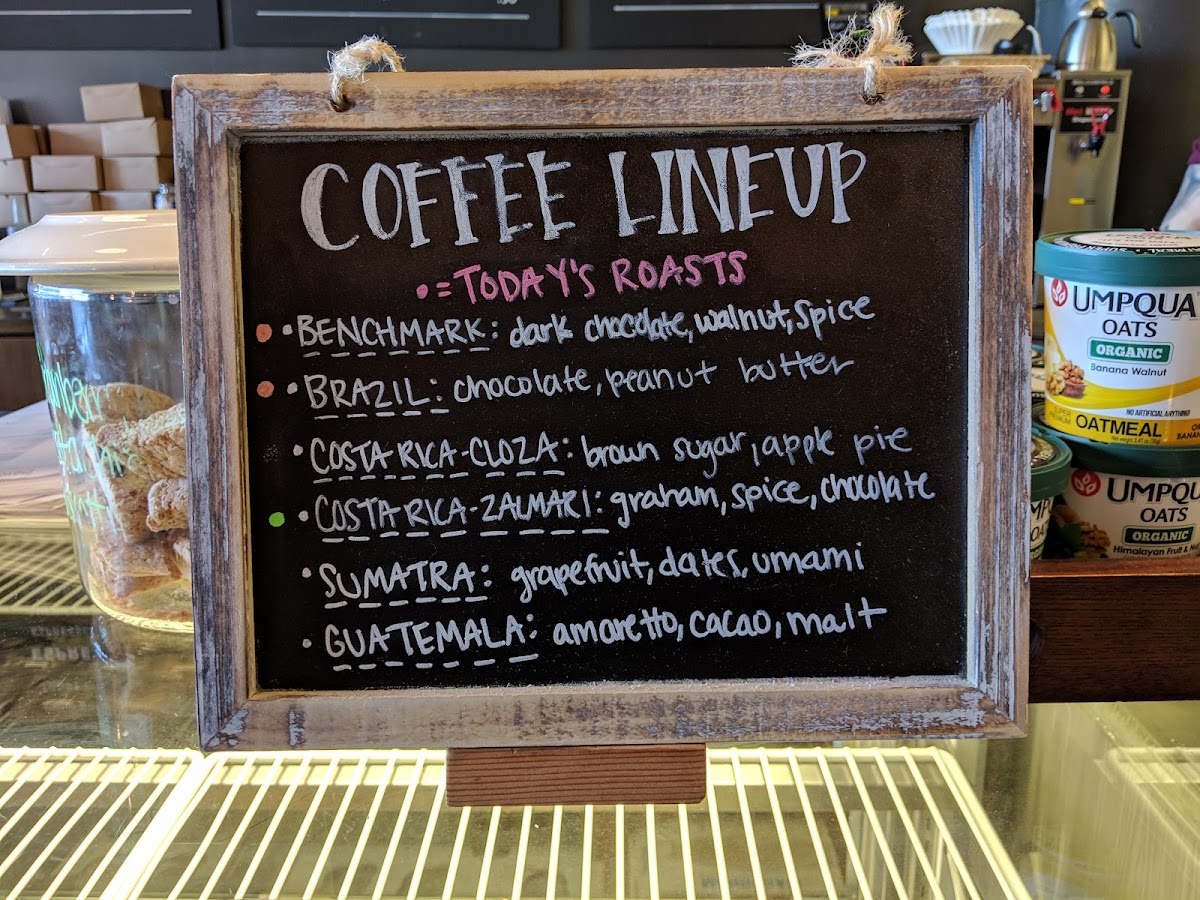 COFFEE LINEUP
• = TODAY'S ROASTS
• BENCHMARK: dark chocolate, walnut, spice
• BRAZIL: chocolate, peanut butter
• COSTA RICA-CLOZA: brown sugar, apple pie
• COSTA RICA-ZALMARI: graham, spice, chocolate
• SUMATRA: grapefruit, dates, umami
• GUATEMALA: amaretto, cacao, malt
UMPQUA
OATS
ORGANIC
Banana Walnut
SUPER PREMIUM
NO ARTIFICIAL ANYTHING!
OATMEAL
Net weight 2.47 oz (70g)
UMPQU
OATS
ORGANIC
Himalayan Fruit & Nu